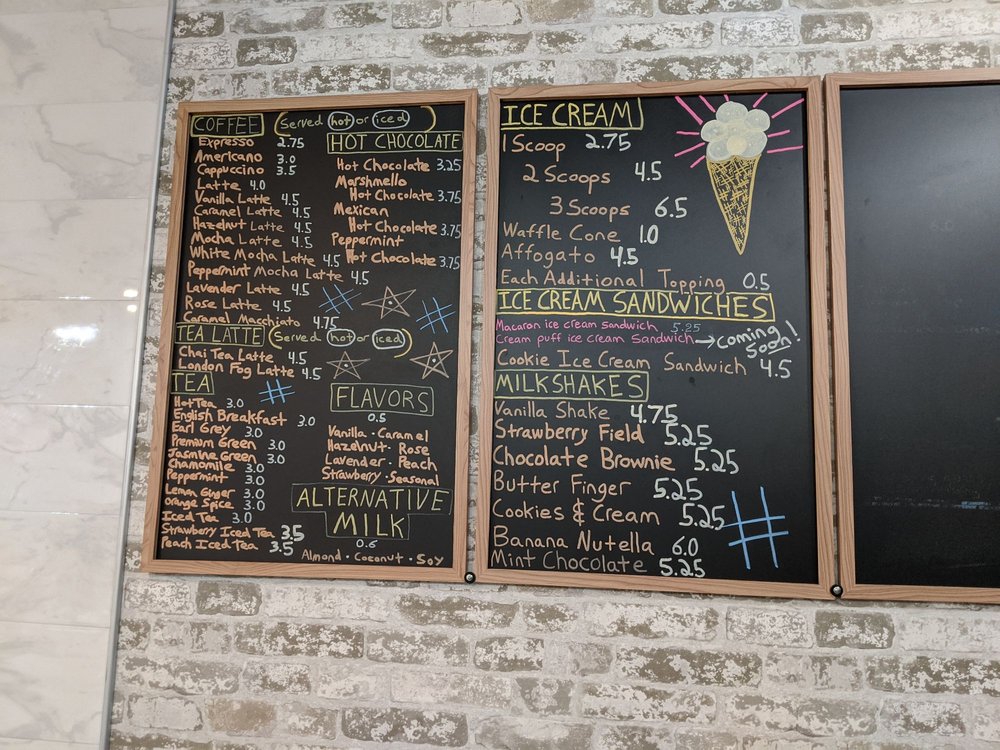 COFFEE (Served hot or iced)
Expresso 2.75
Americano 3.0
Cappuccino 3.5
Latte 4.0
Vanilla Latte 4.5
Caramel Latte 4.5
Hazelnut Latte 4.5
Mocha Latte 4.5
White Mocha Latte 4.5
Peppermint Mocha Latte 4.5
Lavender Latte 4.5
Rose Latte 4.5
Caramel Macchiato 4.75
HOT CHOCOLATE
Hot Chocolate 3.25
Marshmello
Hot Chocolate 3.75
Mexican
Hot Chocolate 3.75
Peppermint
Hot Chocolate 3.75
#
#
TEA LATTE (Served hot or iced)
Chai Tea Latte 4.5
London Fog Latte 4.5
TEA
#
Hot Tea 3.0
English Breakfast 3.0
Earl Grey 3.0
Premium Green 3.0
Jasmine Green 3.0
Chamomile 3.0
Peppermint 3.0
Lemon Ginger 3.0
Orange Spice 3.0
Iced Tea 3.0
Strawberry Iced Tea 3.5
Peach Iced Tea 3.5
FLAVORS
0.5
Vanilla · Caramel
Hazelnut · Rose
Lavender · Peach
Strawberry · Seasonal
ALTERNATIVE
MILK
0.6
Almond · Coconut · Soy
ICE CREAM
1 Scoop 2.75
2 Scoops 4.5
3 Scoops 6.5
Waffle Cone 1.0
Affogato 4.5
Each Additional Topping 0.5
ICE CREAM SANDWICHES
Macaron ice cream sandwich 5.25
Cream puff ice cream sandwich → coming
soon!
Cookie Ice Cream Sandwich 4.5
MILKSHAKES
Vanilla Shake 4.75
Strawberry Field 5.25
Chocolate Brownie 5.25
Butter Finger 5.25
Cookies & Cream 5.25
Banana Nutella 6.0
Mint Chocolate 5.25
#